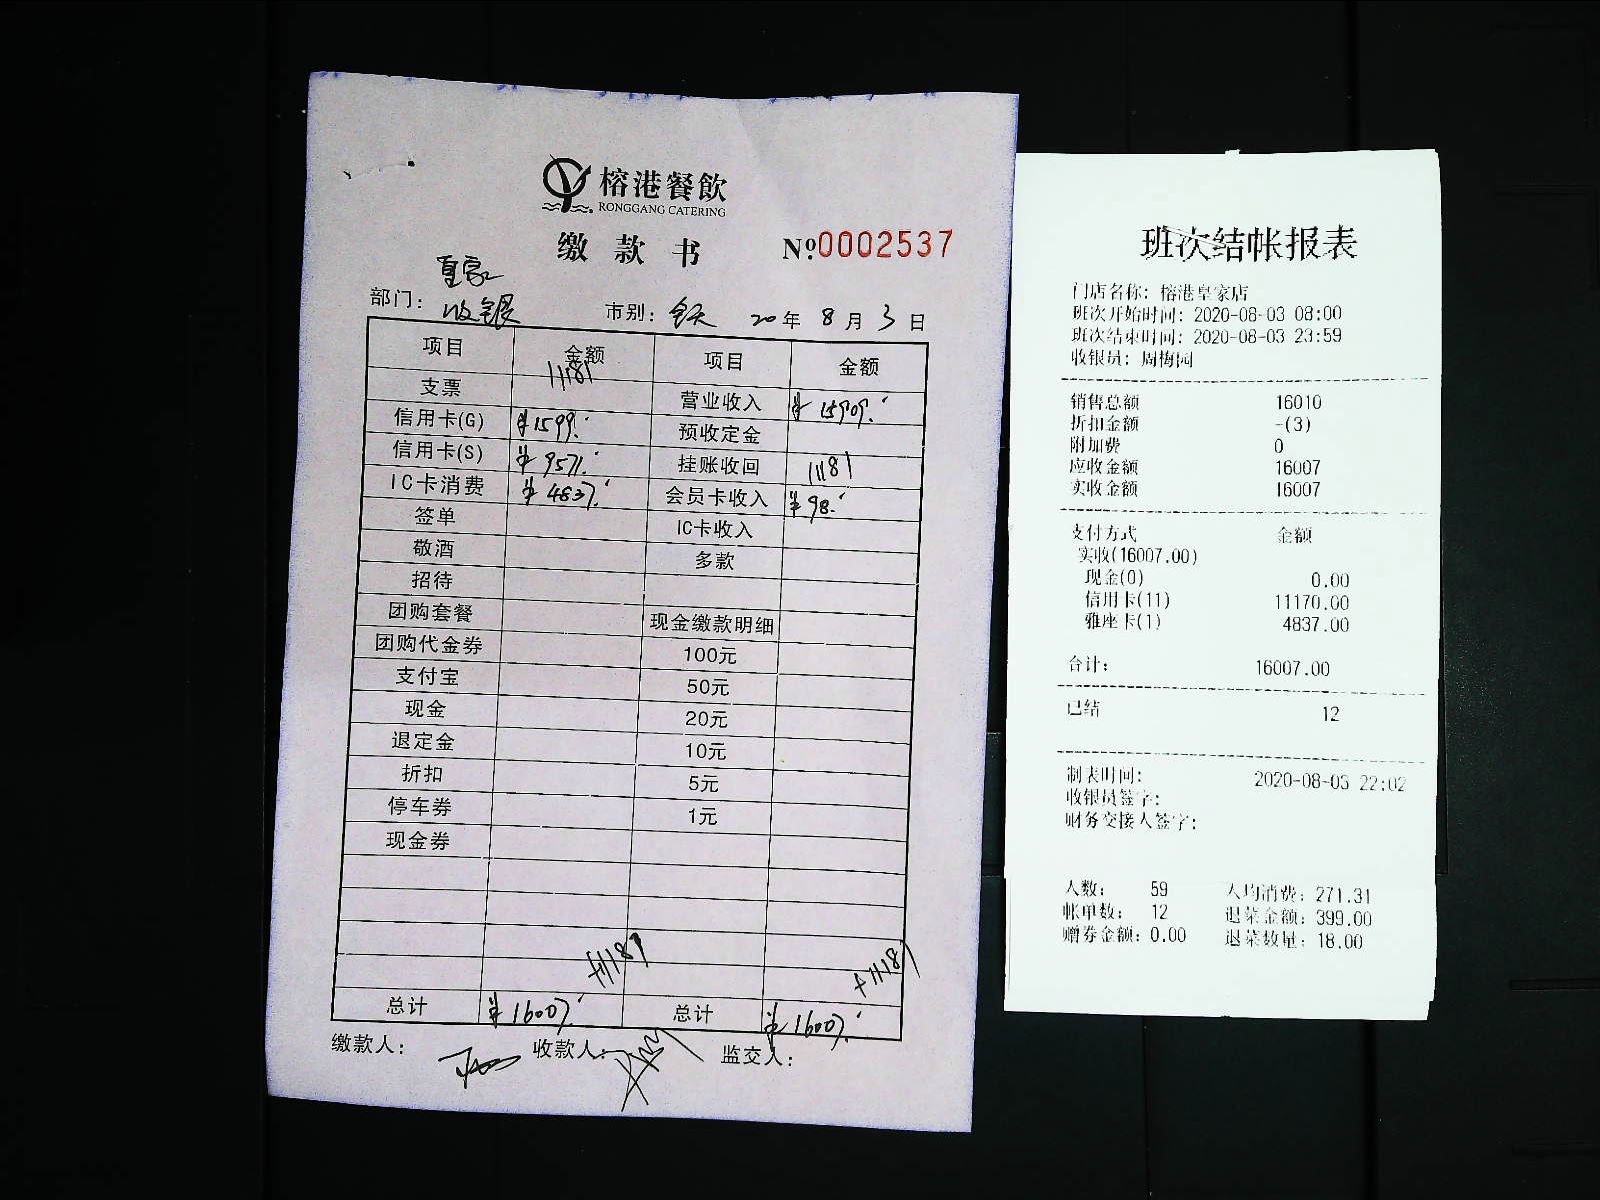 榕港餐飲
RONGGANG CATERING
缴款书 №0002537
皇家
部门: 收银 市别: 全天 20年8月3日
项目 金额 项目 金额
支票 11181 营业收入 ¥15909.
信用卡(G) ¥1599. 预收定金
信用卡(S) ¥9571. 挂账收回 11181
IC卡消费 ¥4837. 会员卡收入 ¥98.
签单 IC卡收入
敬酒 多款
招待
团购套餐 现金缴款明细
团购代金券 100元
支付宝 50元
现金 20元
退定金 10元
折扣 5元
停车券 1元
现金券
+11181 +11181
总计 ¥16007. 总计 ¥16007.
缴款人: 收款人: 监交人:
班次结帐报表
门店名称: 榕港皇家店
班次开始时间: 2020-08-03 08:00
班次结束时间: 2020-08-03 23:59
收银员: 周梅园
销售总额 16010
折扣金额 -(3)
附加费 0
应收金额 16007
实收金额 16007
支付方式 金额
实收(16007.00)
现金(0) 0.00
信用卡(11) 11170.00
雅座卡(1) 4837.00
合计: 16007.00
已结 12
制表时间: 2020-08-03 22:02
收银员签字:
财务交接人签字:
人数: 59 人均消费: 271.31
帐单数: 12 退菜金额: 399.00
赠券金额: 0.00 退菜数量: 18.00